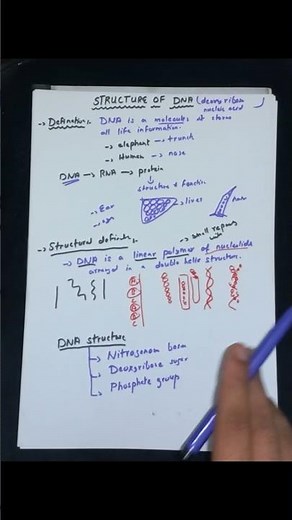 STRUCTURE OF DNA (deoxyribose
nucleic acid)
→ Definition:- DNA is a molecules it stores
all life information.
→ elephant → trunk
→ Human → nose
DNA → RNA → protein
structure & function
→ Ear
→ liver
→ Structural definition
→ DNA is a linear polymer of nucleotide
arranged in a double helix structure.
DNA structure
→ Nitrogenous base
→ Deoxyribose sugar
→ Phosphate group